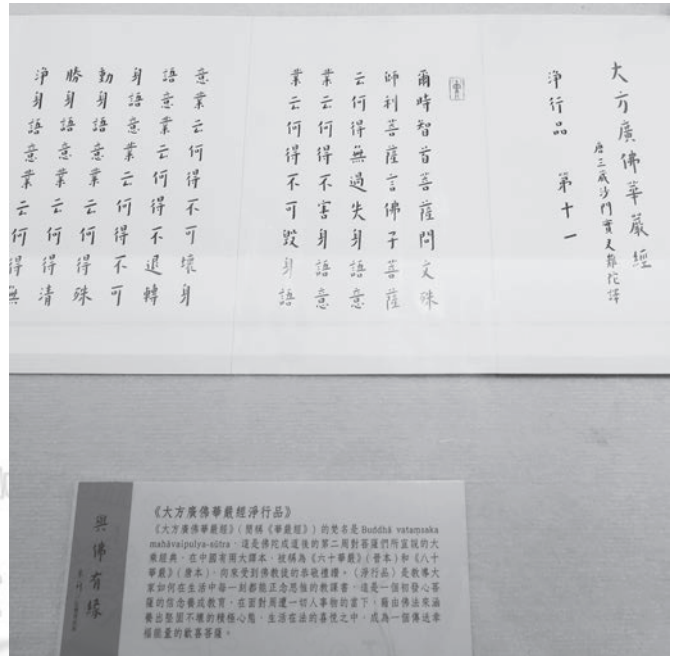 大方廣佛華嚴經
唐三藏沙門實叉難陀譯
淨行品 第十一
爾時智首菩薩問文殊
師利菩薩言佛子菩薩
云何得無過失身語意
業云何得不害身語意
業云何得不可毀身語
意業云何得不可壞身
語意業云何得不退轉
身語意業云何得不可
動身語意業云何得殊
勝身語意業云何得清
淨身語意業云何得無
與佛有緣
《大方廣佛華嚴經淨行品》
《大方廣佛華嚴經》(簡稱《華嚴經》)的梵名是Buddhā vataṃsaka
mahāvaipulya-sūtra,這是佛陀成道後的第二周對菩薩們所宣說的大
乘經典,在中國有兩大譯本,被稱為《六十華嚴》(晉本)和《八十
華嚴》(唐本),向來受到佛教徒的恭敬禮讚。《淨行品》是教導大
家如何在生活中每一刻都能正念思惟的教課書,這是一個初發心菩
薩的信念養成教育,在面對周遭一切人事物的當下,藉由佛法來涵
養出堅固不壞的積極心態,生活在法的喜悅之中,成為一個傳送幸
福能量的歡喜菩薩。